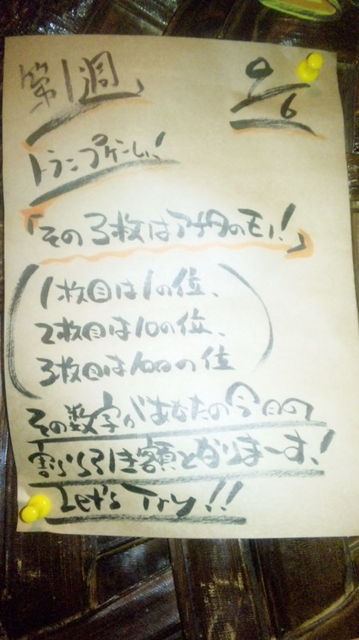 第1週 9/6
トランプゲーム!
「その3枚はアナタのモノ!」
1枚目は1の位、
2枚目は10の位、
3枚目は100の位
その数字があなたの今日の
割り引き額となりまーす!
Let's Try!!